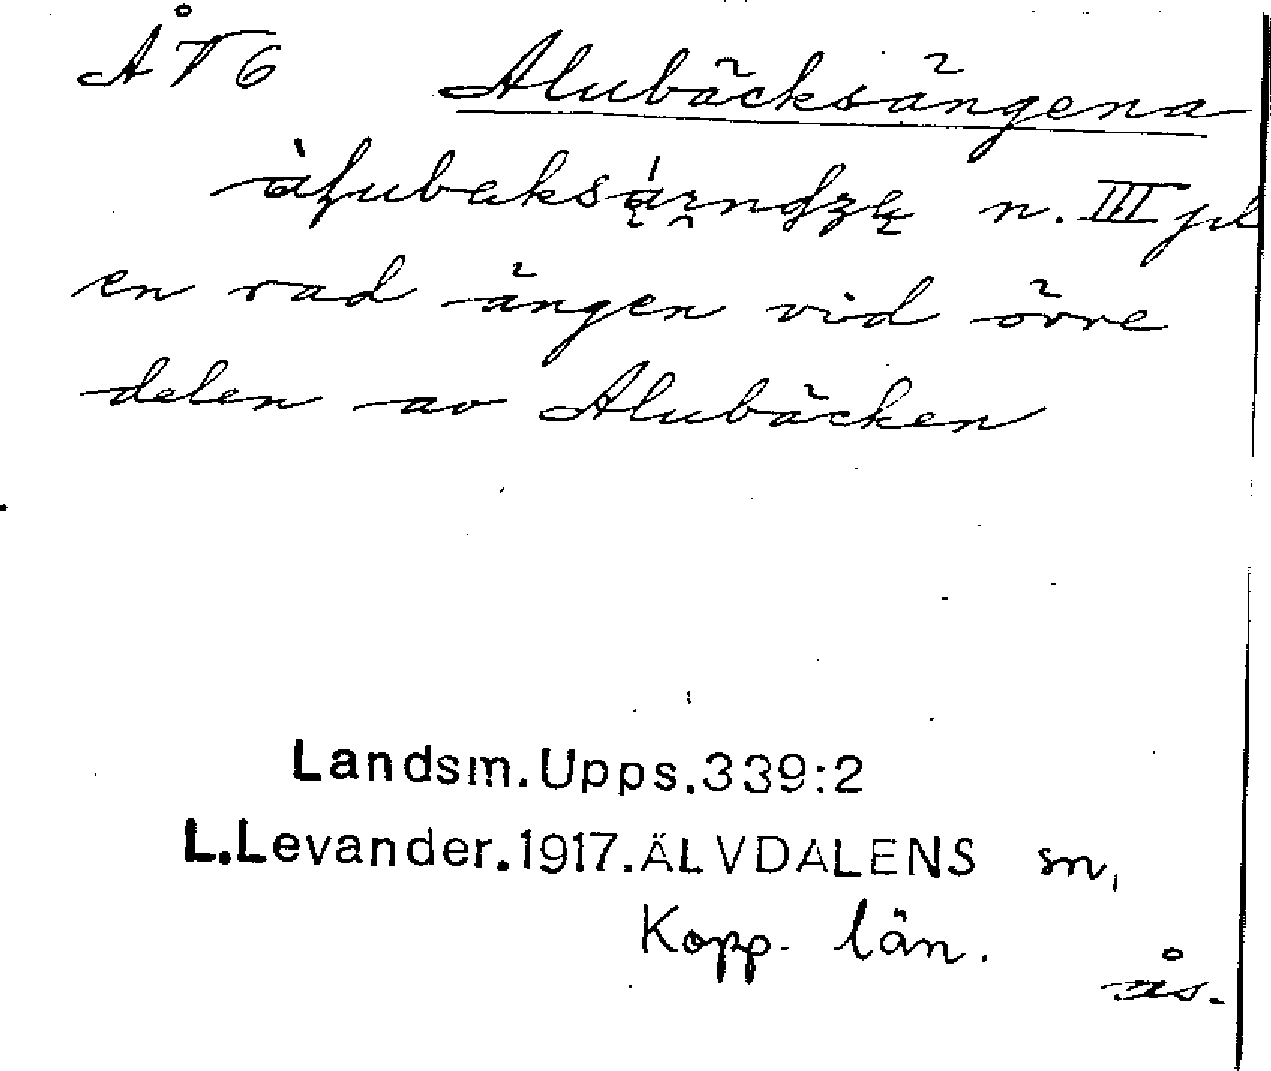 ÅT6 Alubäcksängena
n. III pl
en rad ängen vid övre
delen av Alubäcken
Landsm.Upps.339:2
L.Levander.1917.ÄLVDALENS sn,
Kopp. län.
ås.